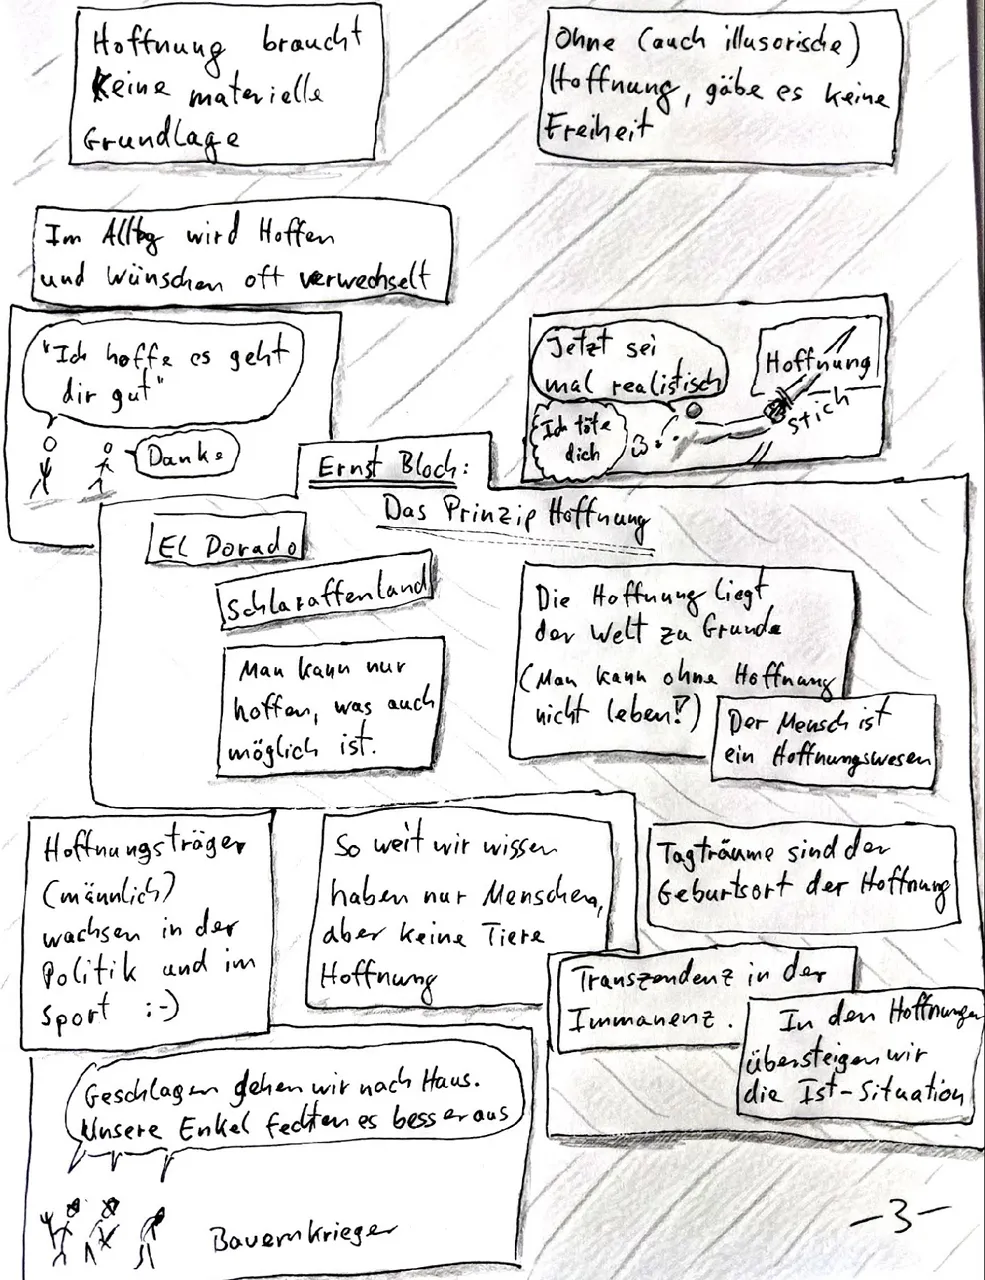 Hoffnung braucht
Keine materielle
Grundlage
Ohne (auch illusorische)
Hoffnung, gäbe es keine
Freiheit
Im Alltag wird Hoffen
und Wünschen oft verwechselt
"Ich hoffe es geht
dir gut"
Danke
Jetzt sei
mal realistisch
Ich töte
dich
Hoffnung
stich
Ernst Bloch:
Das Prinzip Hoffnung
EL Dorado
Schlaraffenland
Man kann nur
hoffen, was auch
möglich ist.
Die Hoffnung liegt
der Welt zu Grunde
(Man kann ohne Hoffnung
nicht leben!?)
Der Mensch ist
ein Hoffnungswesen
Hoffnungsträger
(männlich)
wachsen in der
Politik und im
Sport :-)
So weit wir wissen
haben nur Menschen,
aber keine Tiere
Hoffnung
Tagträume sind der
Geburtsort der Hoffnung
Transzendenz in der
Immanenz.
In den Hoffnungen
übersteigen wir
die Ist-Situation
Geschlagen gehen wir nach Haus.
Unsere Enkel fechten es besser aus
Bauernkrieger
-3-